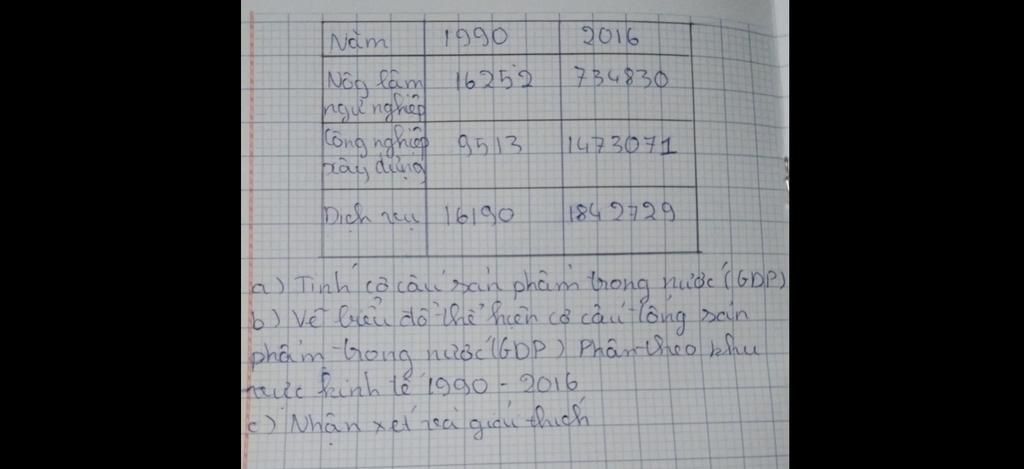 Năm 1990 2016
Nôg lâm 16252 734830
ngư nghiệp
Công nghiệp 9513 1473071
xây dựng
Dịch vụ 16190 1842729
a) Tính cơ cấu sản phẩm trong nước (GDP)
b) Vẽ biểu đồ thể hiện cơ cấu tổng sản
phẩm trong nước (GDP) Phân theo khu
vực kinh tế 1990 - 2016
c) Nhận xét và giải thích